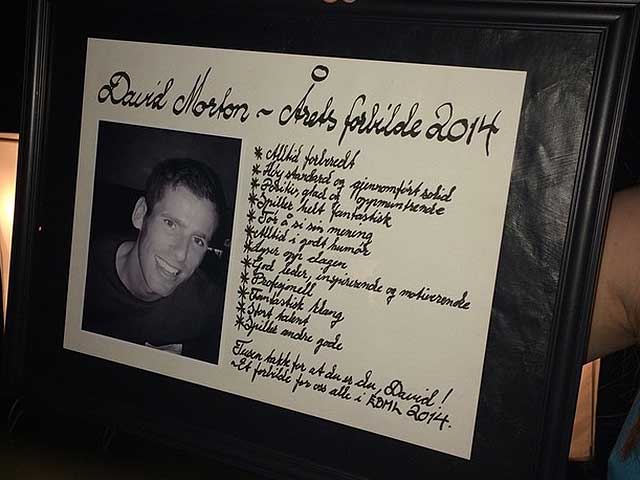 David Morton ~ Årets forbilde 2014
* Alltid forberedt
* Høy standard og gjennomført solid
* Positiv, glad og oppmuntrende
* Spiller helt fantastisk
* Tør å si sin mening
* Alltid i godt humør
* Lyser opp dagen
* God leder, inspirerende og motiverende
* Profesjonell
* Fantastisk klang
* Stort talent
* Spiller andre gode
Tusen takk for at du er du, David!
~ Et forbilde for oss alle i KBML 2014.